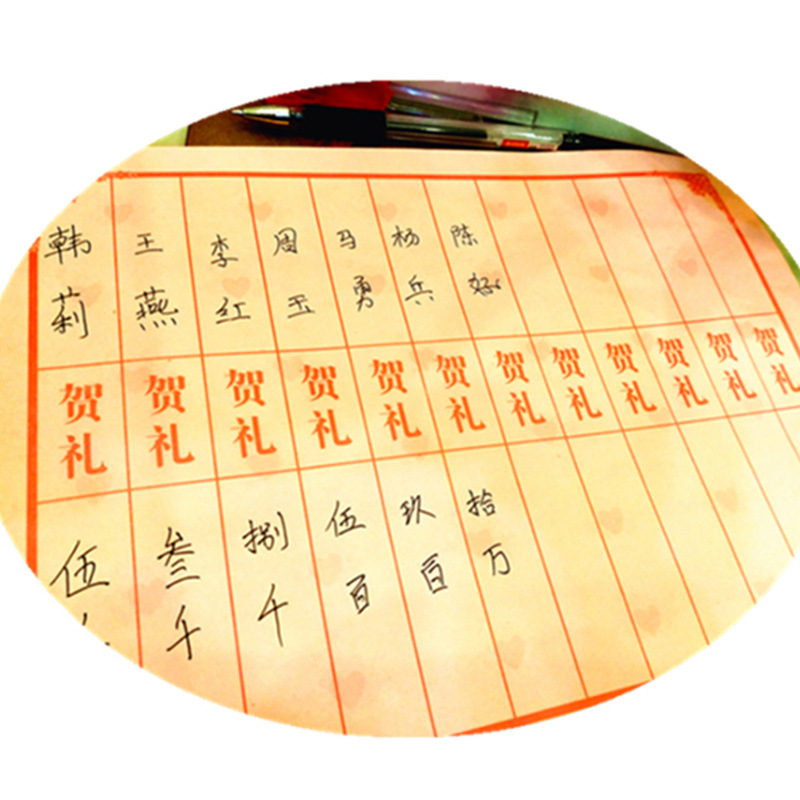 韩莉
王燕
李红
周玉
马勇
杨兵
陈好
贺礼
贺礼
贺礼
贺礼
贺礼
贺礼
贺礼
贺礼
贺礼
贺礼
贺礼
贺礼
伍
叁千
捌千
伍百
玖百
拾万